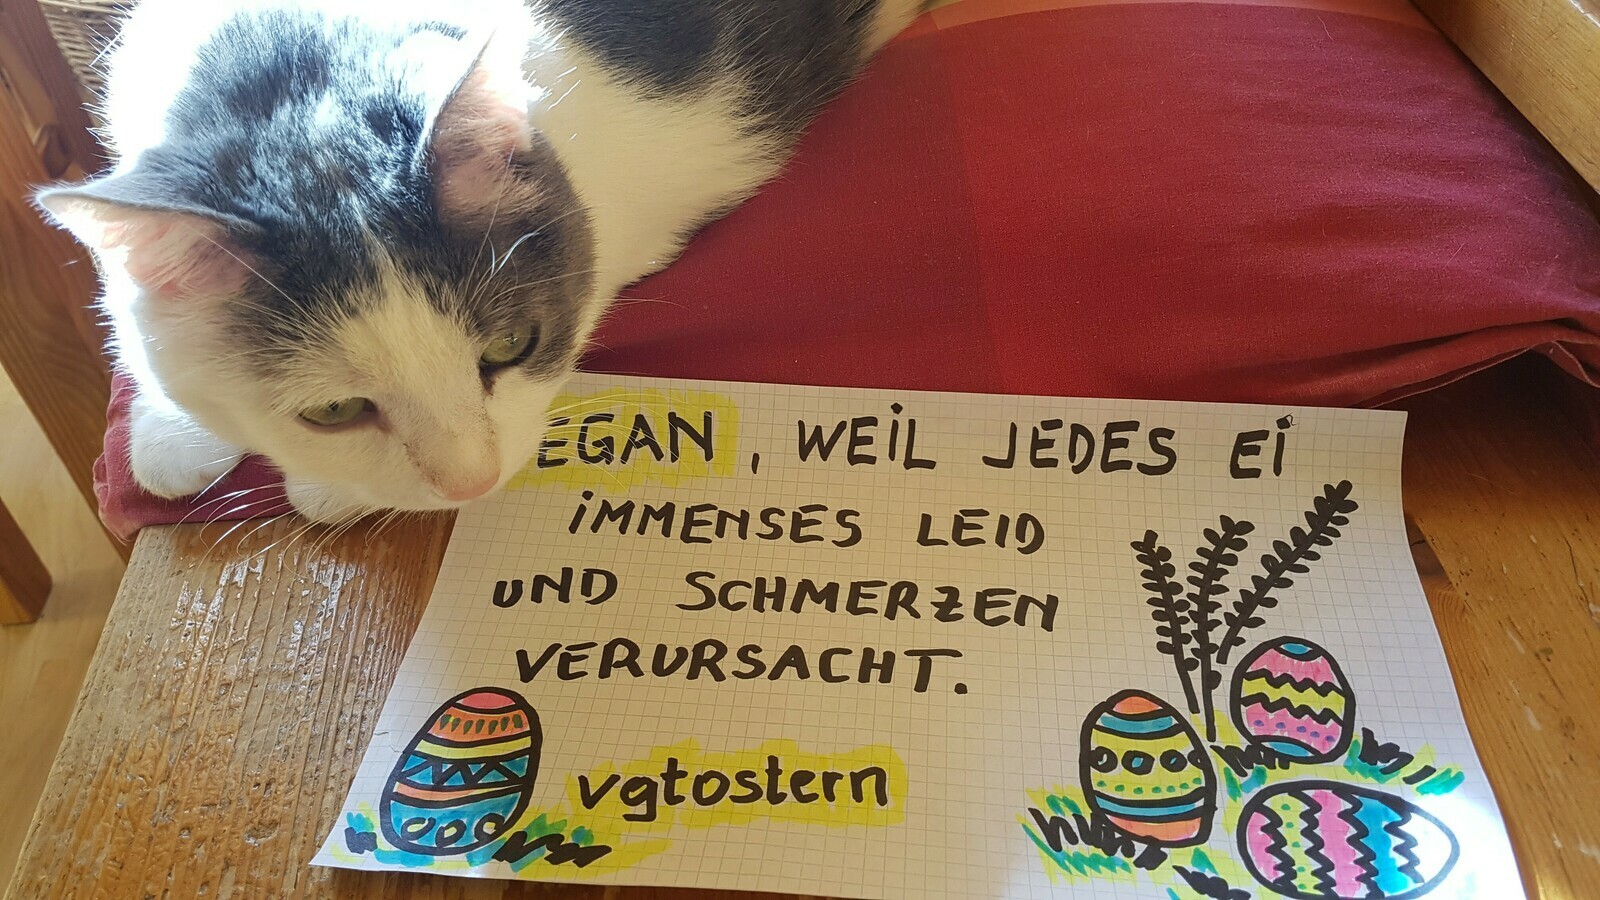 EGAN, WEIL JEDES EI
IMMENSES LEID
UND SCHMERZEN
VERURSACHT.
vgtostern